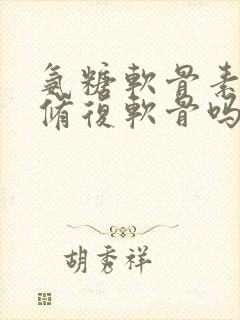 氨糖軟骨素
脩復軟骨嗎
胡秀祥